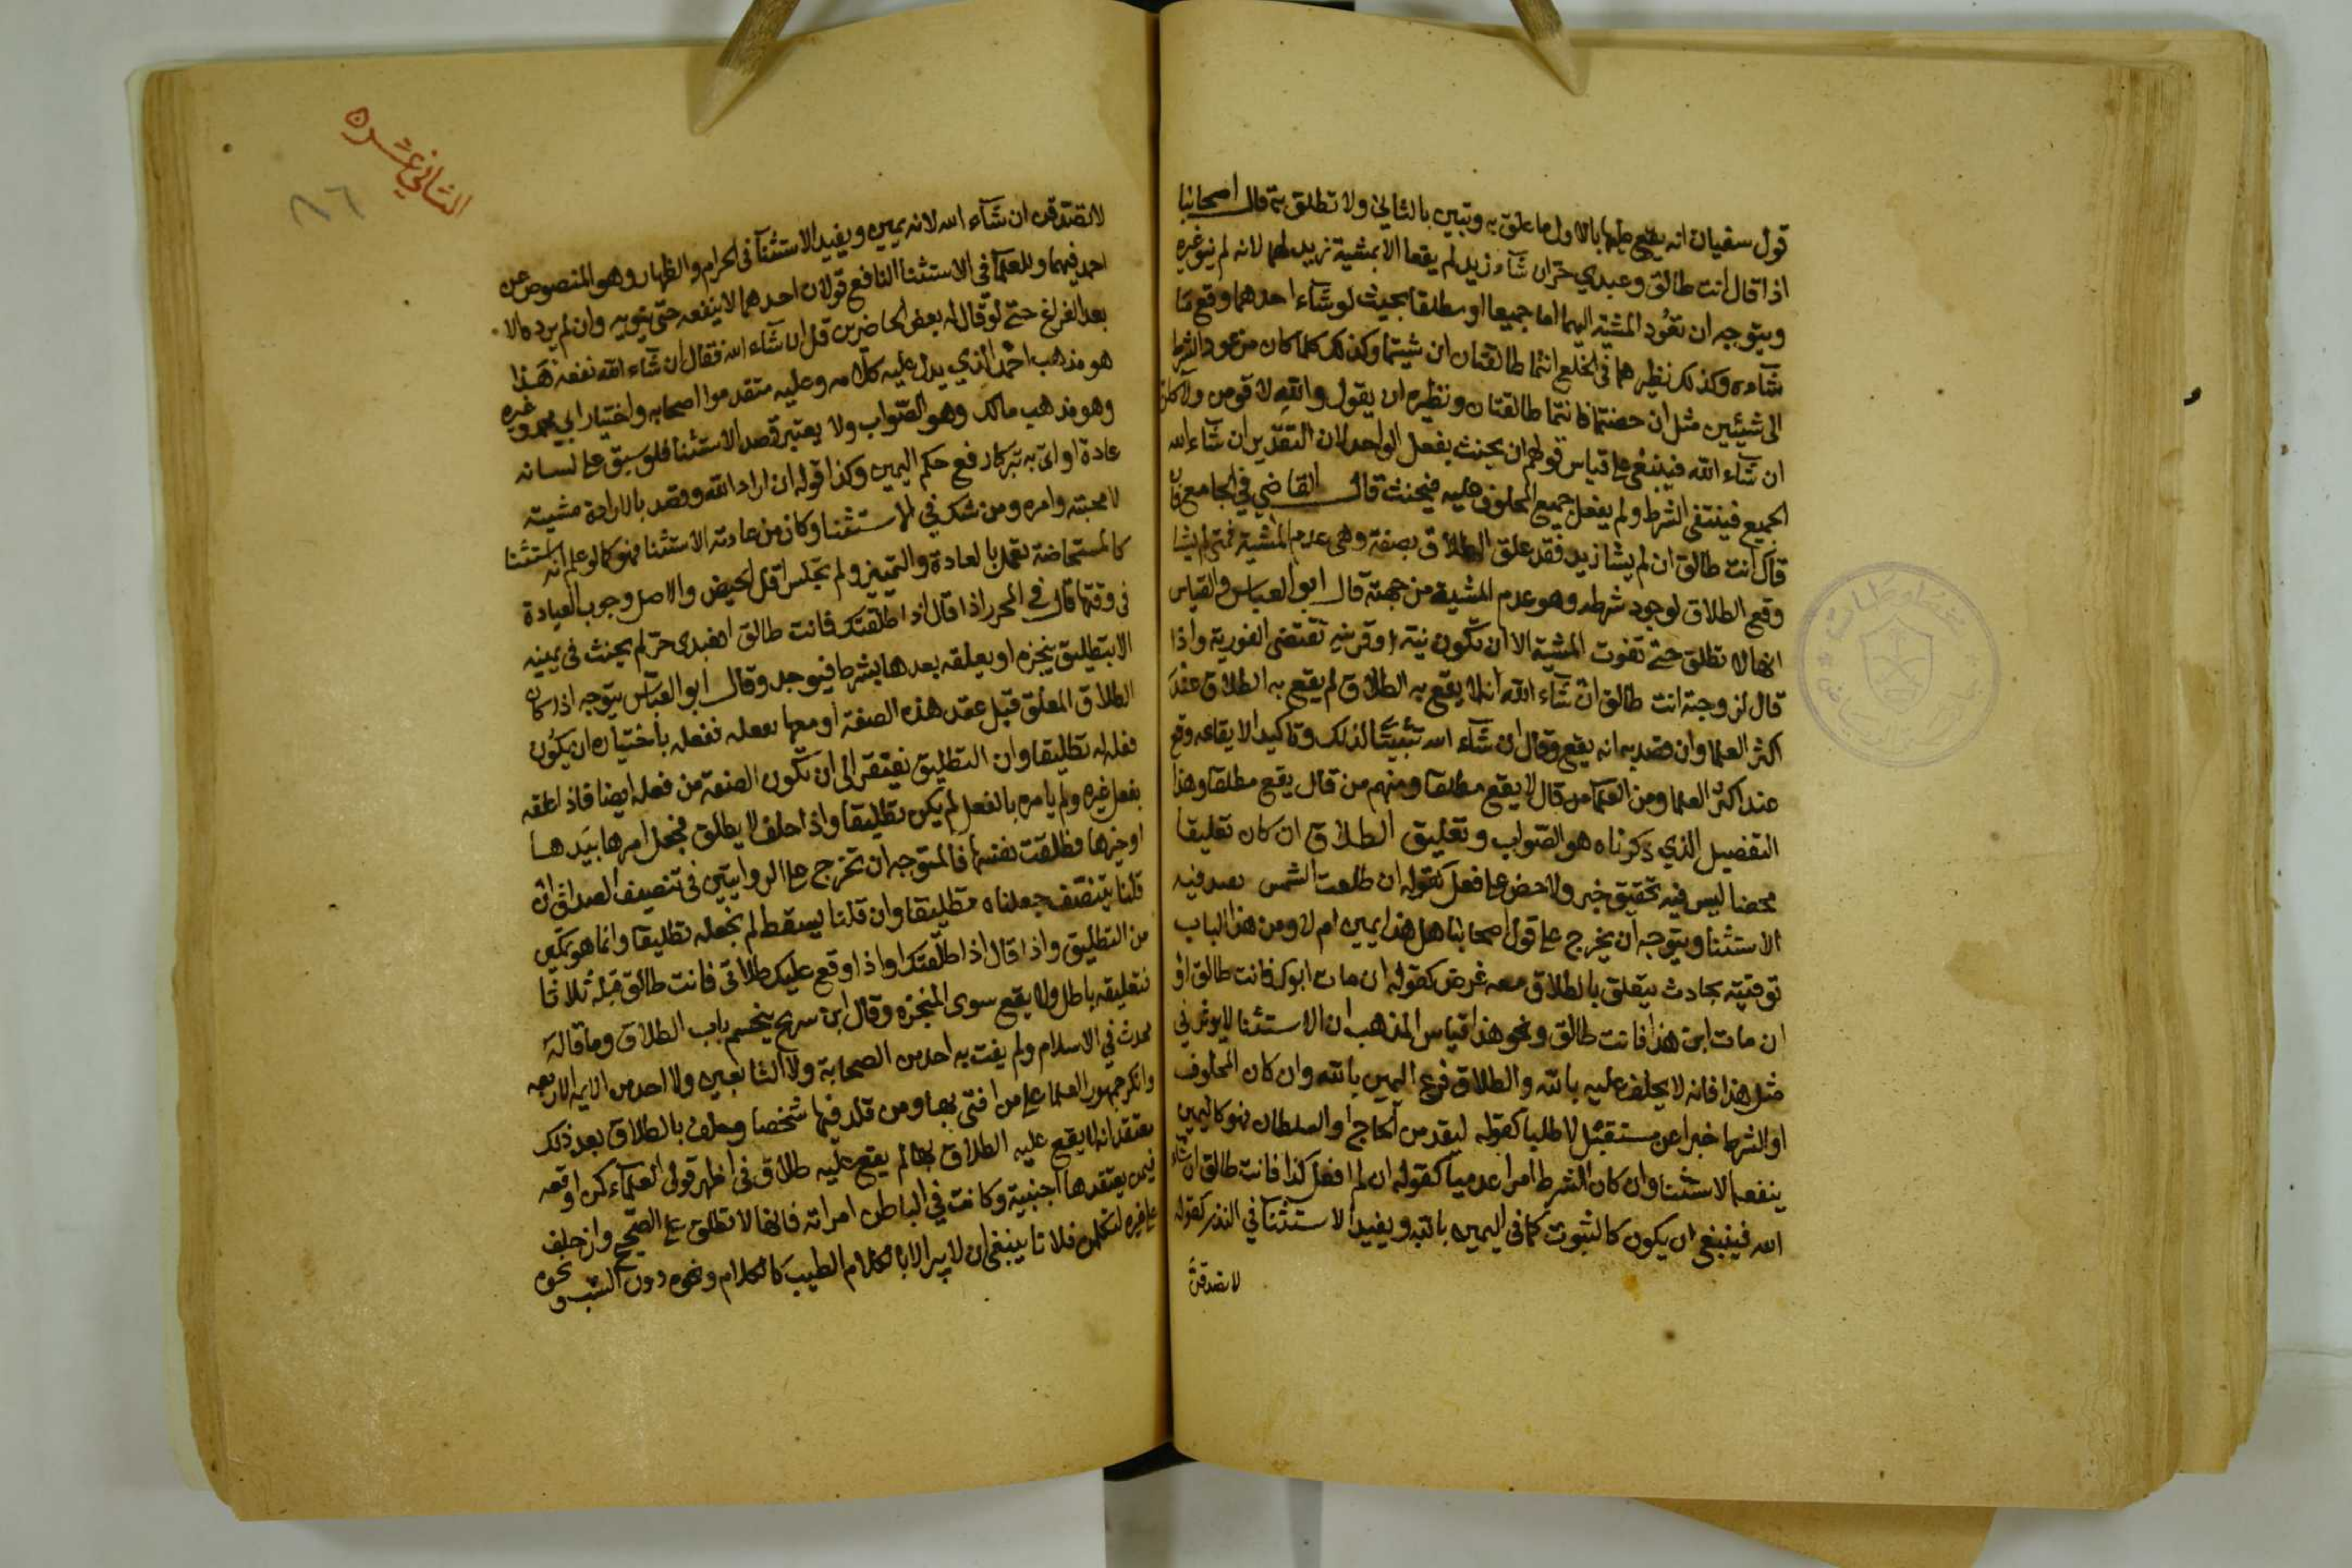 قول سفيان انه يقع عليها بالاول ما علق به وتبين بالثاني ولا تطلق ثم قال اصحابنا
اذا قال انت طالق وعبدي حر ان شآء زيد لم يقعا الا بمشية زيد لهما لانه لم ينو غيره
ويتوجه ان تعود المشية اليهما اما جميعا او مطلقا بحيث لو شآء احدهما وقع ما
شآءه وكذلك نظيرهما في الخلع انتما طالقتان ان شيتما وكذلك كلما كان من عود الشرط
الى شيئين مثل ان حضتما فانتما طالقتان ونظيره ان يقول والله لاقومن ولاكلمن
ان شآء الله فينبغي على قياس قولهم ان يحنث بفعل الواحد لان التقدير ان شآء الله
الجميع فينتفي الشرط ولم يفعل جميع المحلوف عليه فيحنث قال القاضي في الجامع فان
قال انت طالق ان لم يشا زيد فقد علق الطلاق بصفة وهي عدم المشية فمتى لم يشا
وقع الطلاق لوجود شرطه وهو عدم المشية من جهته قال ابو العباس والقياس
انها لا تطلق حتى تفوت المشية الا ان تكون نية او قرينه تقتضي الفورية واذا
قال لزوجته انت طالق ان شآء الله انه لا يقع به الطلاق لم يقع به الطلاق عند
اكثر العلما وان قصد به انه يقع وقال ان شآء الله تثبيتا لذلك وتاكيدا لايقاعه وقع
عند اكثر العلما ومن العلمآ من قال لا يقع مطلقا ومنهم من قال يقع مطلقا وهذا
التفصيل الذي ذكرناه هو الصواب وتعليق الطلاق ان كان تعليقا
محضا ليس فيه تحقيق خبر ولا حض على فعل كقوله ان طلعت الشمس يصد فيه
الاستثنا ويتوجه ان يخرج على قول اصحابنا هل هذا يمين ام لا ومن هذا الباب
توقيته بحادث يتعلق بالطلاق معه غرض كقوله ان مات ابوك فانت طالق او
ان مات ابي هذا فانت طالق ونحو هذا قياس المذهب ان الاستثنا لا يوثر في
مثل هذا فانه لا يحلف عليه بالله والطلاق فرع اليمين بالله وان كان المحلوف
او الشرط خبرا عن مستقبل لا طلبا كقوله ليقدمن الحاج او السلطان فهو كاليمين
ينفع الاستثنا وان كان الشرط امرا عدميا كقوله ان لم افعل كذا فانت طالق ان شاء
الله فينبغي ان يكون كالثبوت كما في اليمين بالله ويفيد الاستثنا في النذر كقوله
لا تصدقن
الثاني عشره
٨٦
لاتصدقن ان شآء الله لانه يمين ويفيد الاستثنآ في الحرام والظهار وهو المنصوص عن
احمد فيهما وللعلمآ في الاستثنا النافع قولان احدهما لا ينفعه حتى ينويه وان لم يرد الا
بعد الفراغ حتى لو قال له بعض الحاضرين قل ان شآء الله فقال ان شآء الله نفعه هذا
هو مذهب احمد الذي يدل عليه كلامه وعليه متقدموا اصحابه واختيار ابي محمد وغيره
وهو مذهب مالك وهو الصواب ولا يعتبر قصد الاستثنا فلو سبق على لسانه
عادة او اتى به تبركا رفع حكم اليمين وكذا قوله ان اراد الله وقصد بالارادة مشيته
لا محبته وامره ومن شك في الاستثنا وكان من عادته الاستثنا فهو كما لو علم انه استثنا
كالمستحاضة تعمل بالعادة والتمييز ولم تجلس اقل الحيض والاصل وجوب العبادة
في وقتها قال في المحرر اذا قال اذا طلقتك فانت طالق او فعبدي حر لم يحنث في يمينه
الا بتطليق ينجزه او يعلقه بعدها بشرط فيوجد وقال ابو العباس يتوجه اذا كان
الطلاق المعلق قبل عقد هذه الصفة او معها بفعله ففعله باختياره ان يكون
فعله له تطليقا وان التطليق يفتقر الى ان تكون الصفة من فعله ايضا فاذا علقه
بفعل غيره ولم يامره بالفعل لم يكن تطليقا واذا حلف لا يطلق فجعل امرها بيدها
او خيرها فطلقت نفسها فالمتوجه ان تخرج على الروايتين في تنصيف الصداق ان
قلنا يتنصف جعلناه تطليقا وان قلنا يسقط لم نجعله تطليقا وانما هو تمكين
من التطليق واذا قال اذا طلقتك او اذا وقع عليك طلاقي فانت طالق قبله ثلاثا
فتعليقه باطل ولا يقع سوى المنجزة وقال ابن سريج ينحسم باب الطلاق وما قاله
محدث في الاسلام ولم يفت به احد من الصحابة ولا التابعين ولا احد من الايمة الاربعه
وانكر جمهور العلما على من افتى بها ومن قلد فيها شخصا وحلف بالطلاق بعد ذلك
معتقدا انه لا يقع عليه الطلاق بها لم يقع عليه طلاق في اظهر قولي العلمآء كمن اوقعه
فيمن يعتقدها اجنبية وكانت في الباطن امراته فانها لا تطلق على الصحيح وان حلف
على غيره لتكلمن فلانا ينبغي ان لا يبر الا بالكلام الطيب كالكلام ونحوه دون السب ونحوه